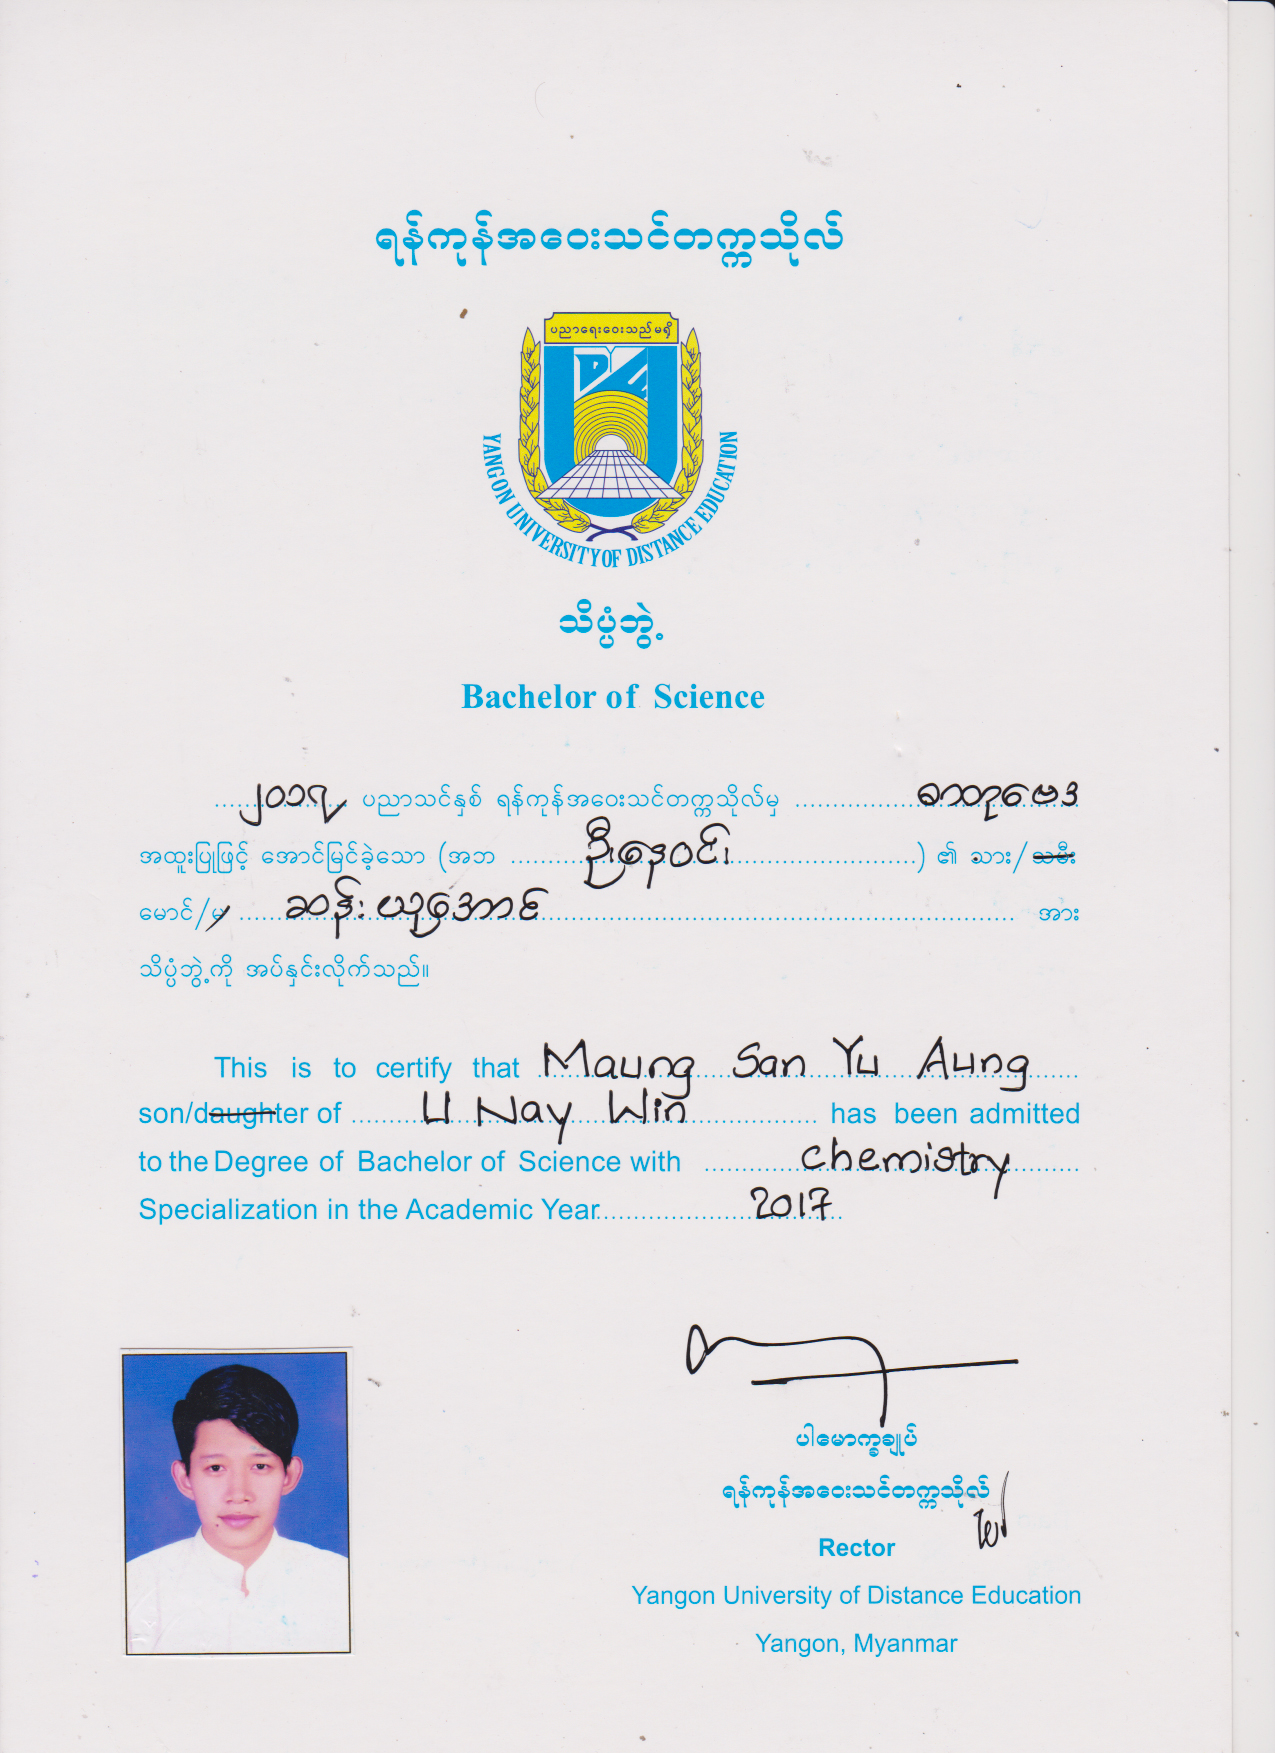 ရန်ကုန်အဝေးသင်တက္ကသိုလ်
ပညာရေးဝေးသည်မရှိ
YANGON UNIVERSITY OF DISTANCE EDUCATION
သိပ္ပံဘွဲ့
Bachelor of Science
၂၀၁၇ ပညာသင်နှစ် ရန်ကုန်အဝေးသင်တက္ကသိုလ်မှ ဓာတုဗေဒ
အထူးပြုဖြင့် အောင်မြင်ခဲ့သော (အဘ ဦးနေဝင်း) ၏ သား/သမီး
မောင်/မ ဆန်းယုအောင် အား
သိပ္ပံဘွဲ့ကို အပ်နှင်းလိုက်သည်။
This is to certify that Maung San Yu Aung
son/daughter of U Nay Win has been admitted
to the Degree of Bachelor of Science with Chemistry
Specialization in the Academic Year 2017
ပါမောက္ခချုပ်
ရန်ကုန်အဝေးသင်တက္ကသိုလ်
Rector
Yangon University of Distance Education
Yangon, Myanmar